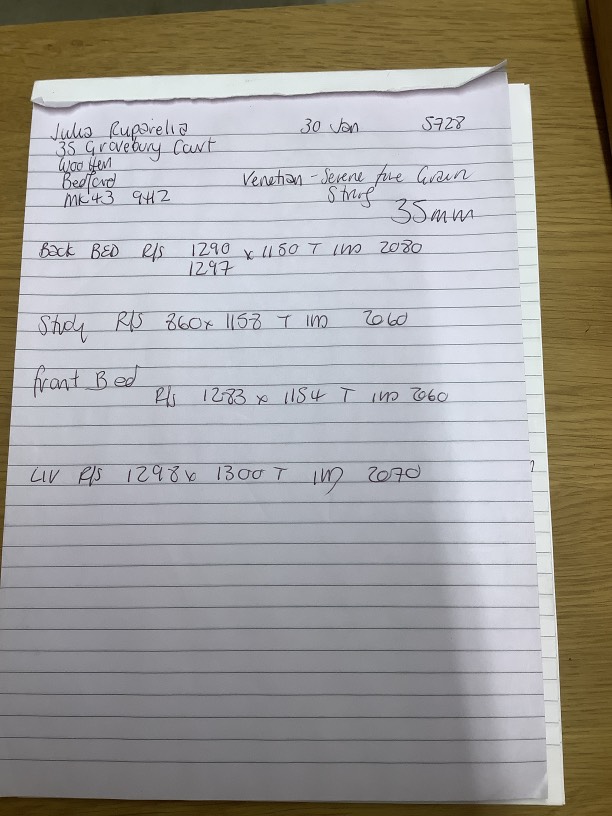 Julia Ruparelia 30 Jan 5728
35 Gravebury Court
Wootten
Bedford
MK43 9H2
Venetian - Serene fine Grain
String
35mm
Back BED R/S 1290 x 1150 T IM 2080
1297
Study R/S 860 x 1158 T IM 2060
front Bed
R/S 1283 x 1154 T IM 2060
LIV R/S 1298 x 1300 T IM 2070